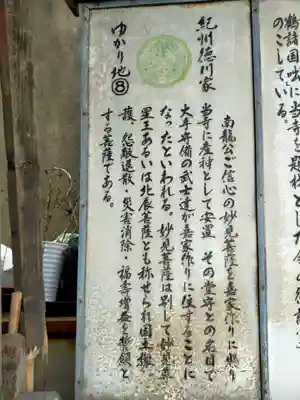 鶴諸国
のこしている。
紀州徳川家
ゆかり地⑧
南龍公ご信心の妙見菩薩を嘉家作りに賜り
当寺に産神として安置 その堂守との名目で
大手守備の武士達が嘉家作りに住することに
なったといわれる。妙見菩薩は別して妙見尊
星王あるいは北辰菩薩とも称せられ国土擁
護、怨敵退散、災害消除・福寿増益を祈願と
する菩薩である。